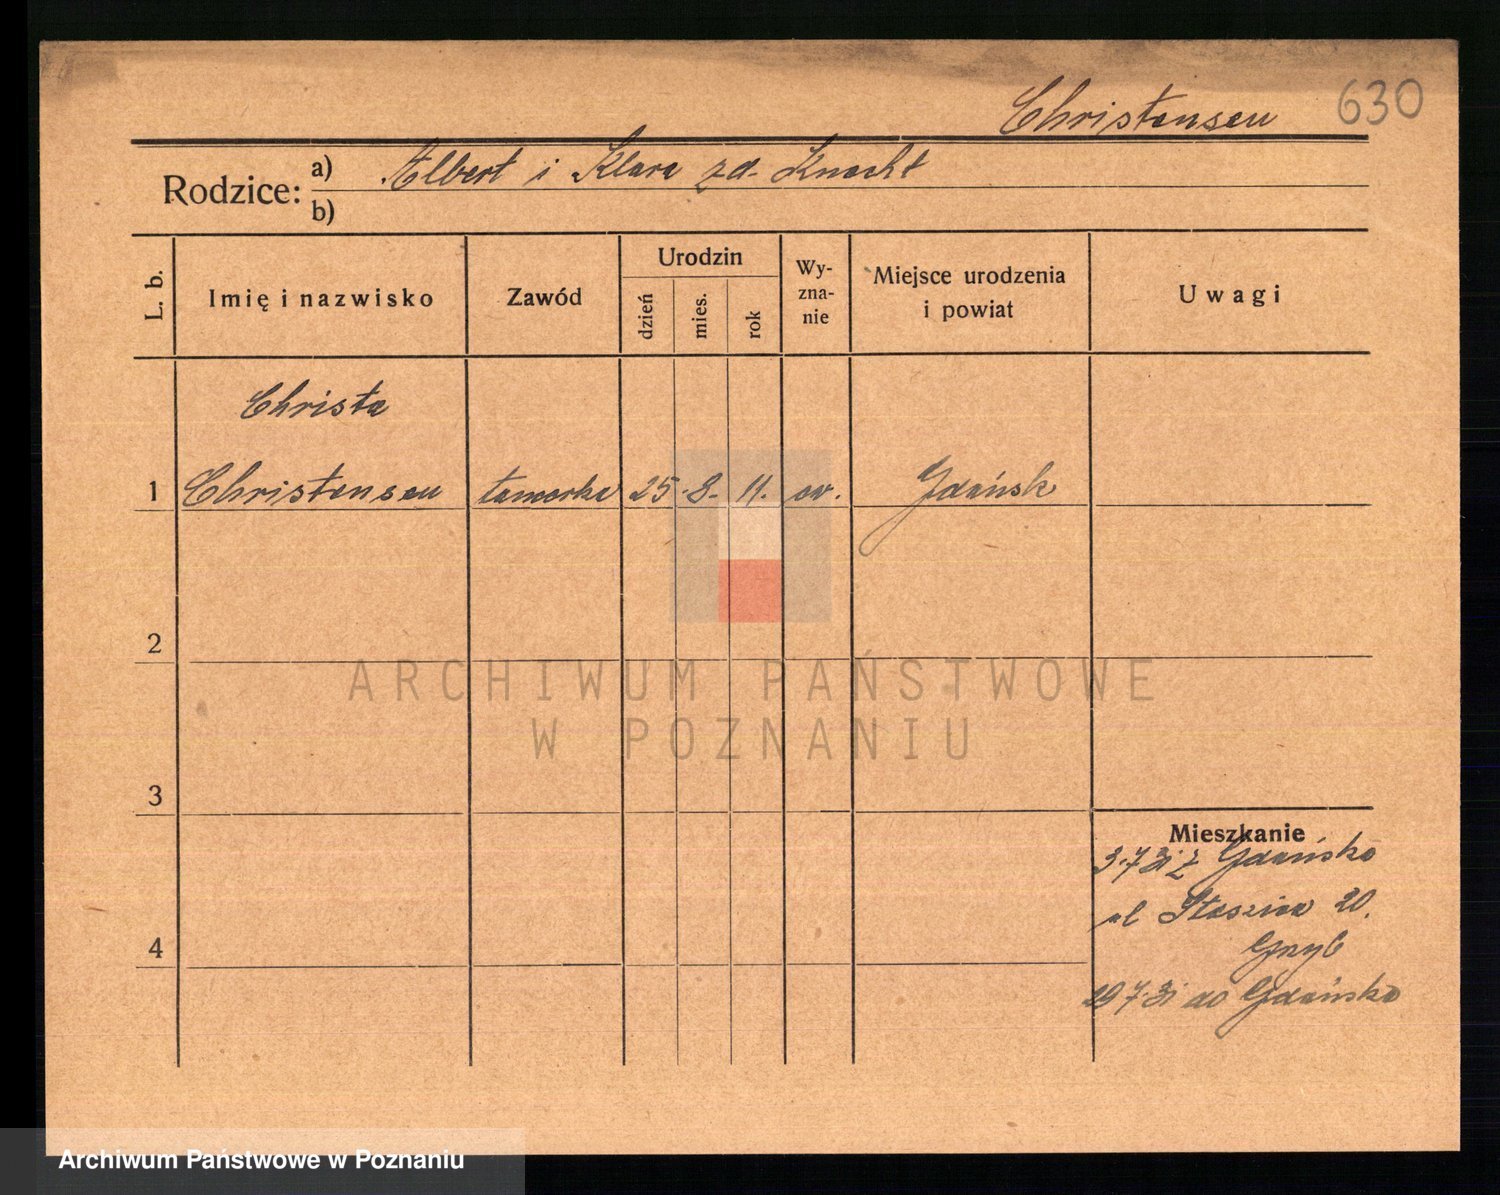 Christensen 630
Rodzice: a) Albert i Klara zd. Knecht
b)
L. b.
Imię i nazwisko
Zawód
Urodzin
dzień
mies.
rok
Wy-
zna-
nie
Miejsce urodzenia
i powiat
Uwagi
Christa
1 Christensen 25. 8. 11. ew. Gdańsk
2
3
4
Mieszkanie
3.7.31 z Gdańska
ul Staszica 20.
29 7.31 do Gdańska
ARCHIWUM PAŃSTWOWE
W POZNANIU
Archiwum Państwowe w Poznaniu